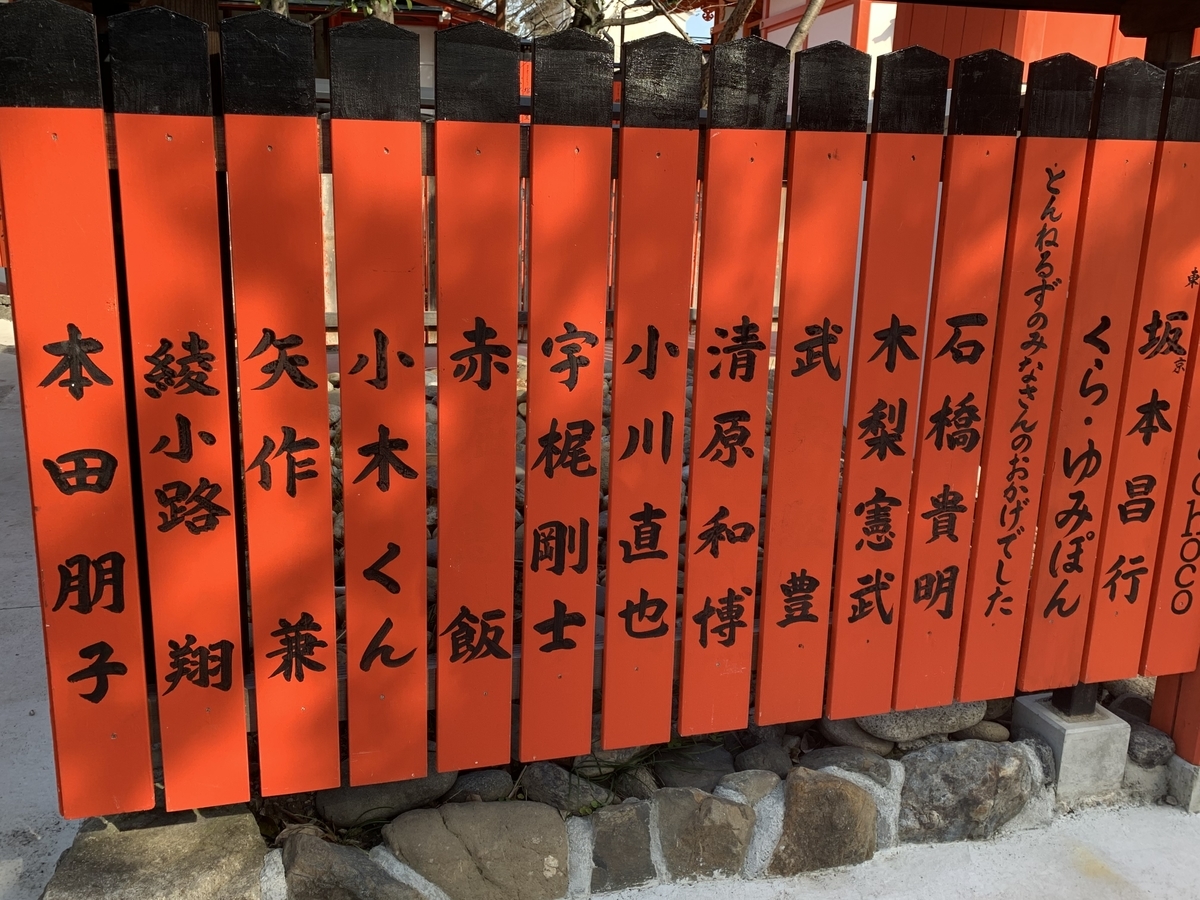 東京
坂本昌行
くら・ゆみぽん
とんねるずのみなさんのおかげでした
石橋貴明
木梨憲武
武豊
清原和博
小川直也
宇梶剛士
赤飯
小木くん
矢作兼
綾小路翔
本田朋子